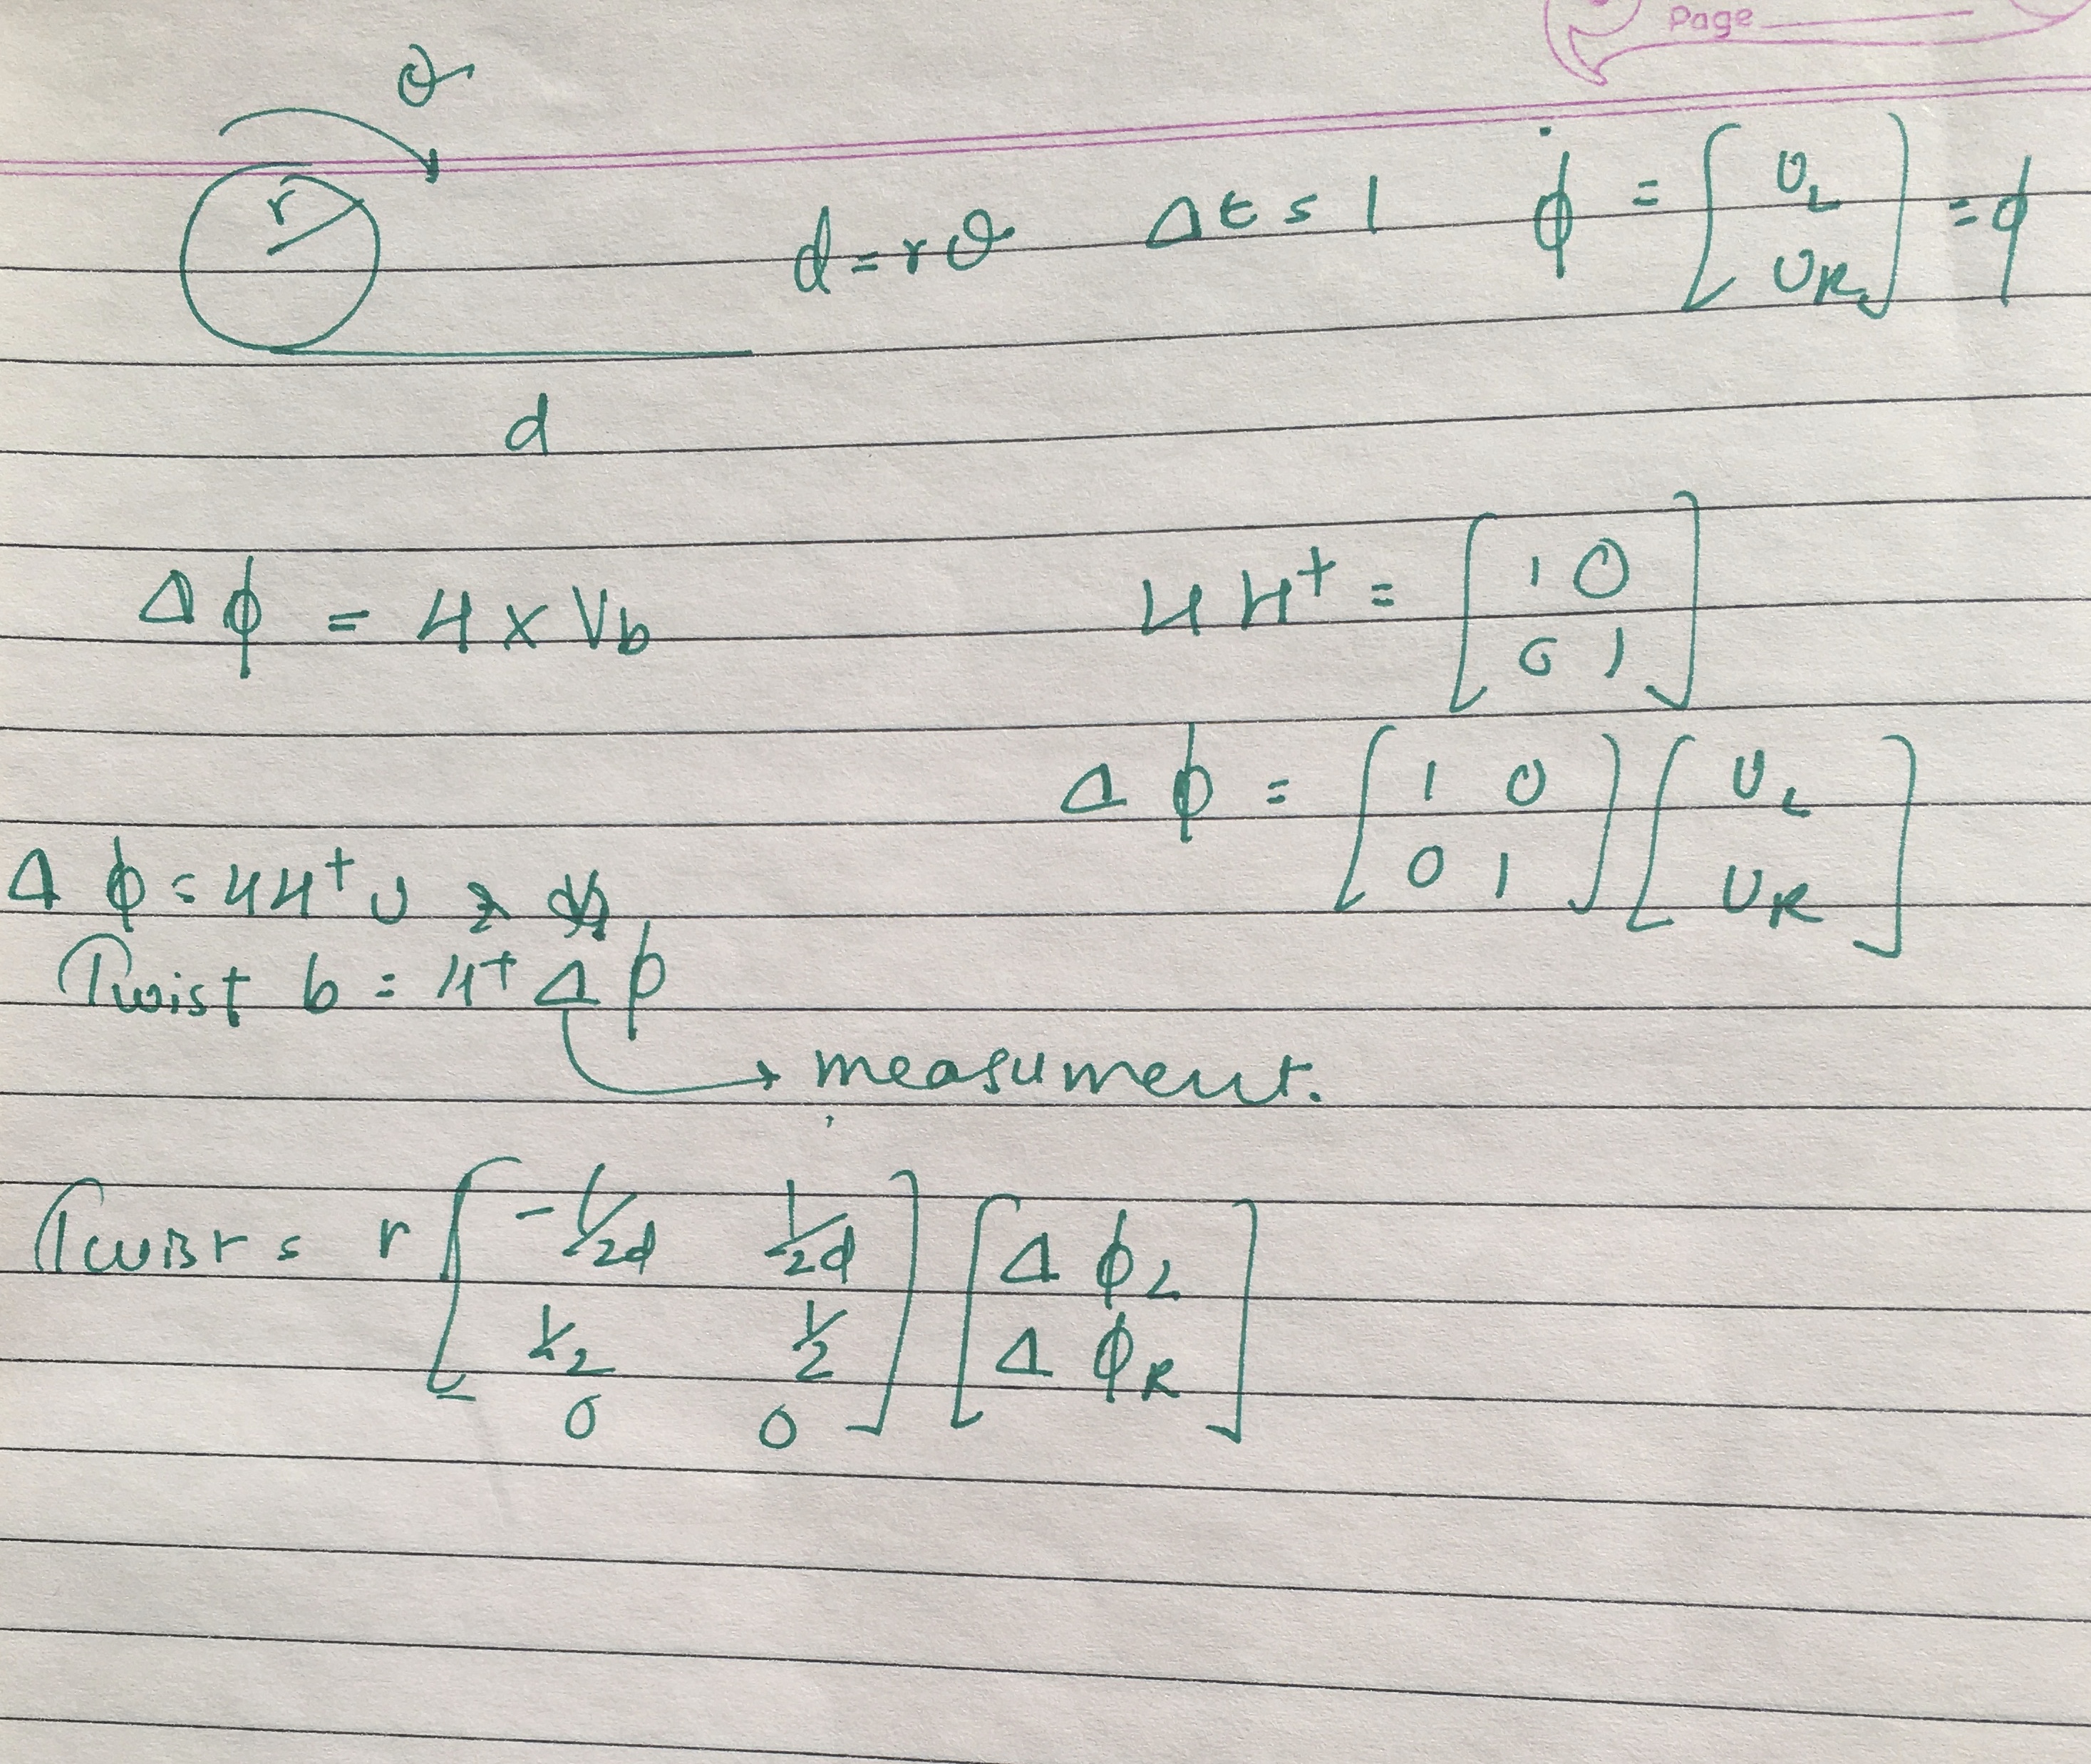 Page
θ
r
d = rθ   Δt = 1   φ̇ = [ U_L ; U_R ] = φ
d
Δφ = H x V_b   H H⁺ = [ 1 0 ; 0 1 ]
Δφ = [ 1 0 ; 0 1 ] [ U_L ; U_R ]
Δφ = HH⁺ U
Twist b = H⁺ Δφ
→ measument.
Twist = r [ -1/2d 1/2d ; 1/2 1/2 ; 0 0 ] [ Δφ_L ; Δφ_R ]